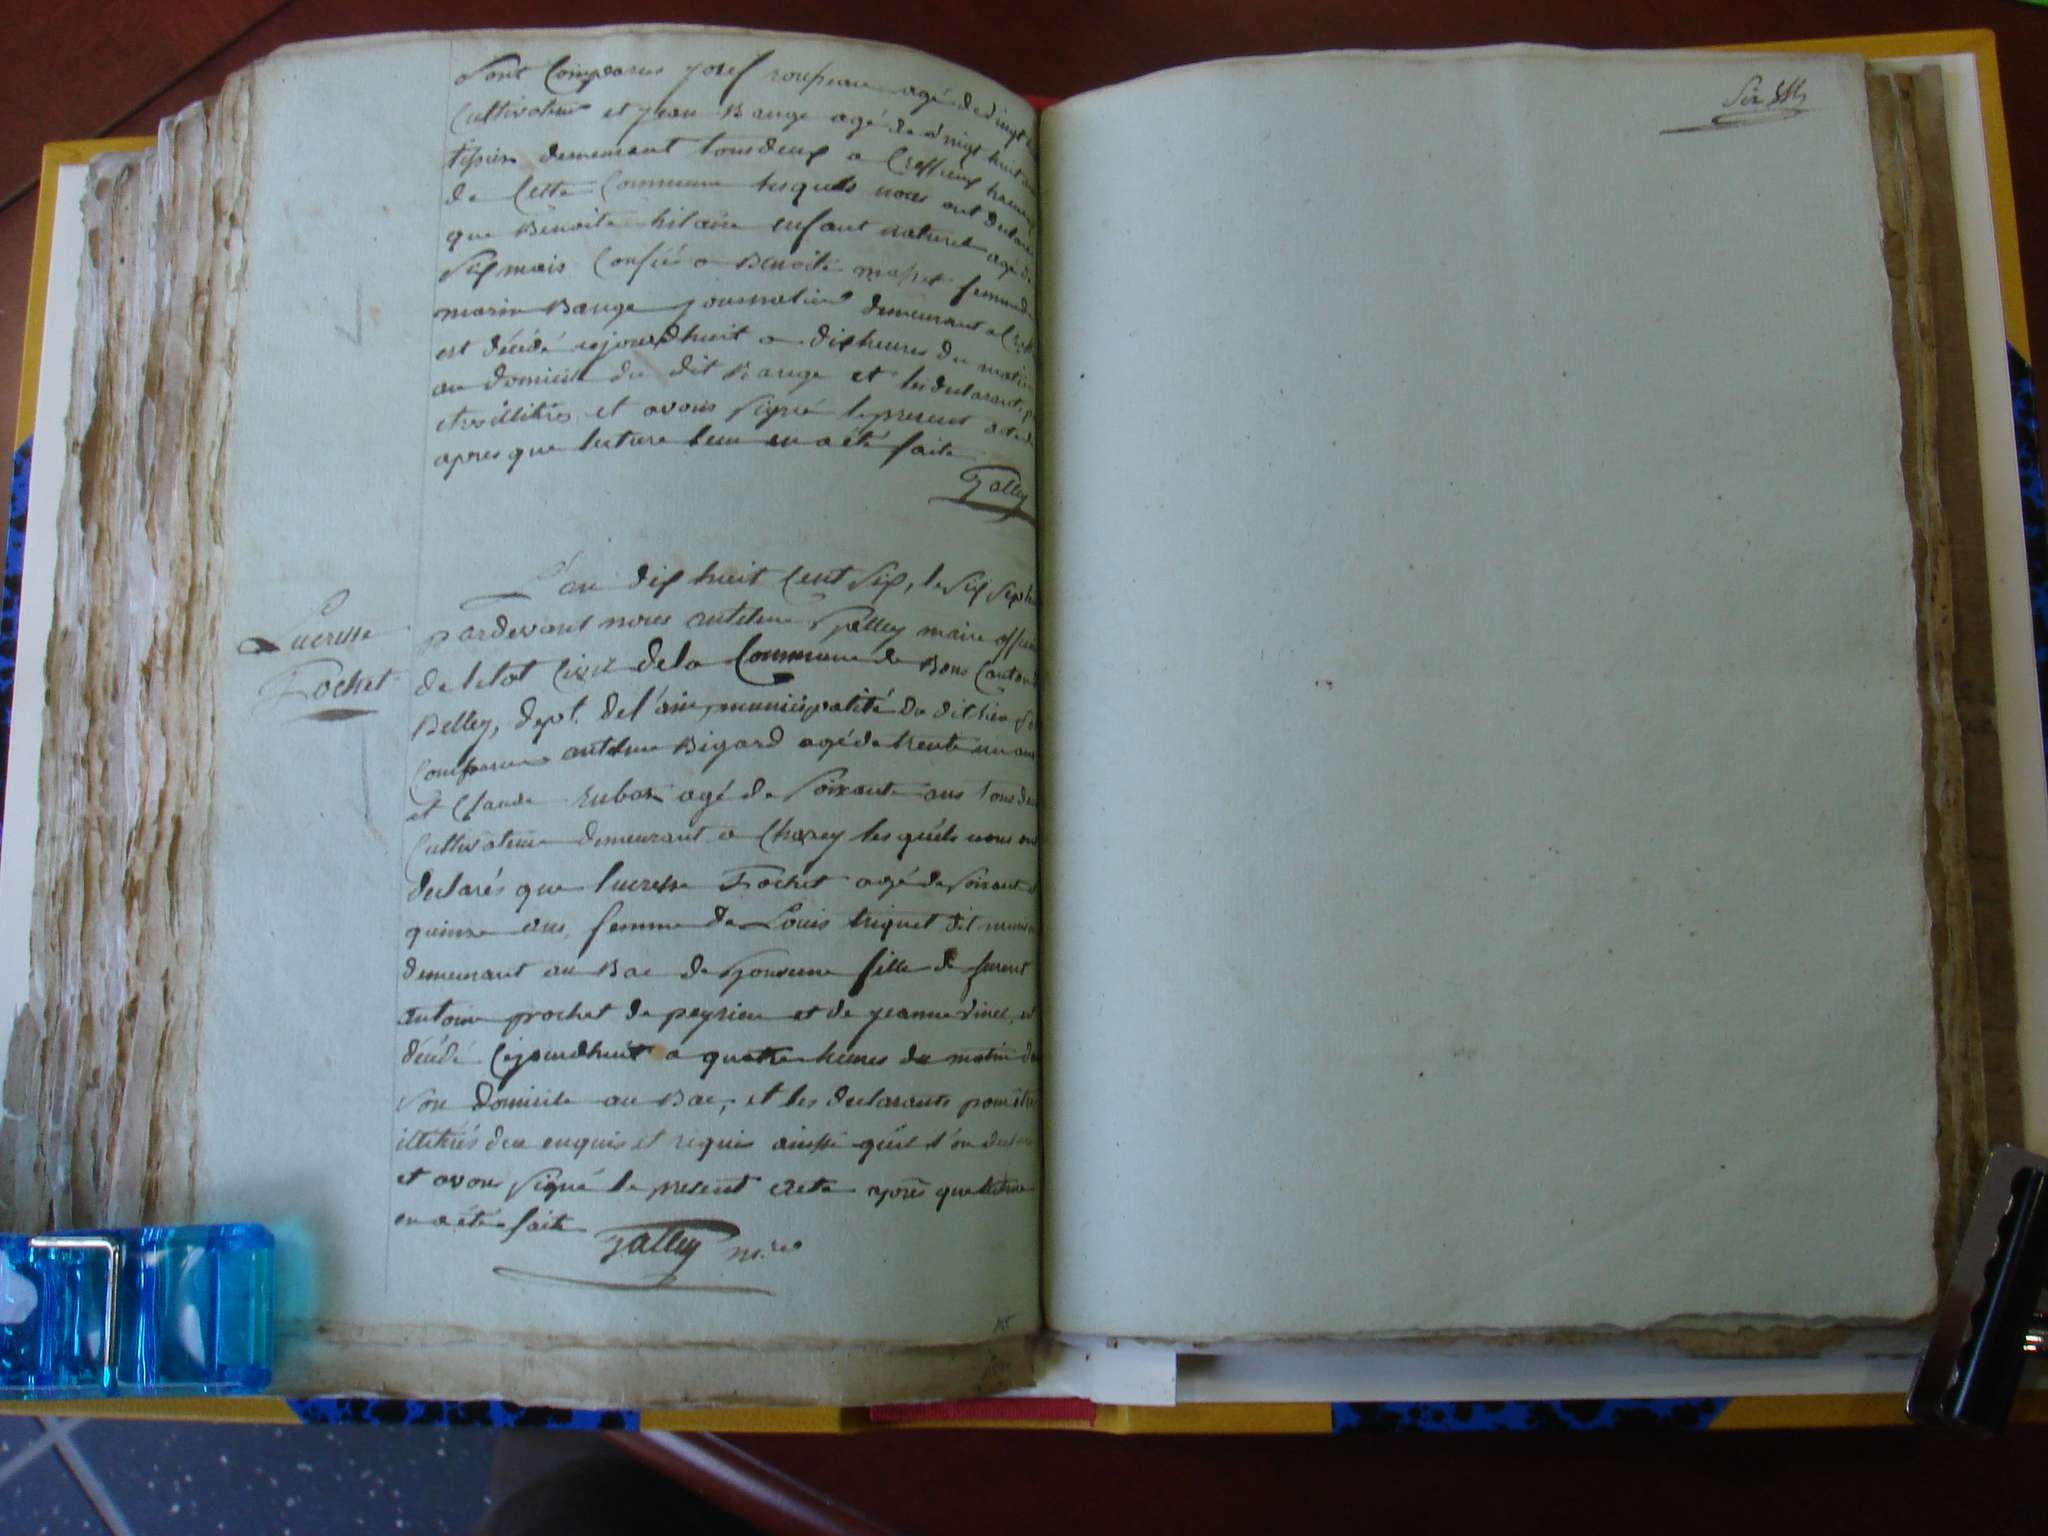 sont Comparus Josef roupeau agé de vingt
Cultivateur et jean Bauge agé de vingt huit ans
demeurant tous deux a Cressieux hameau
de Cette Commune lesquels nous ont declaré
que Benoite hilaire enfant naturel agé de
six mois Confiée a Benoite masset femme de
marin Bauge journalier demeurant a
est décédé cejourdhuit a dix heures du matin
au domicile du dit Bauge et les declarants
illitrés et avons signé le present acte
apres que lecture leur en a été faite
Galley
Lucresse
Fochet
L'an dix huit Cent six, le six
pardevant nous antelme Galley maire officier
de letat Civil de la Commune de Bons Canton de
Belley, dept. de l'ain, municipalité du dit lieu
Comparus antelme Bigard agé de trente un ans
et Claude rubat agé de soixante ans tous deux
Cultivateur demeurant a Charey les quels nous ont
declarés que lucresse Fochet agé de soixante
quinze ans, femme de Louis triquet dit
demeurant au Bac de fille de
antoine prochet de peyrieu et de jeanne vinet, est
décédé Cejourdhuit a quatre heures du matin
son domicile au Bac, et les declarants pour être
illitrés de ce enquis et requis ainsi quil l'on declaré
et avons signé le present acte après que lecture
en a été faite
Galley m.re